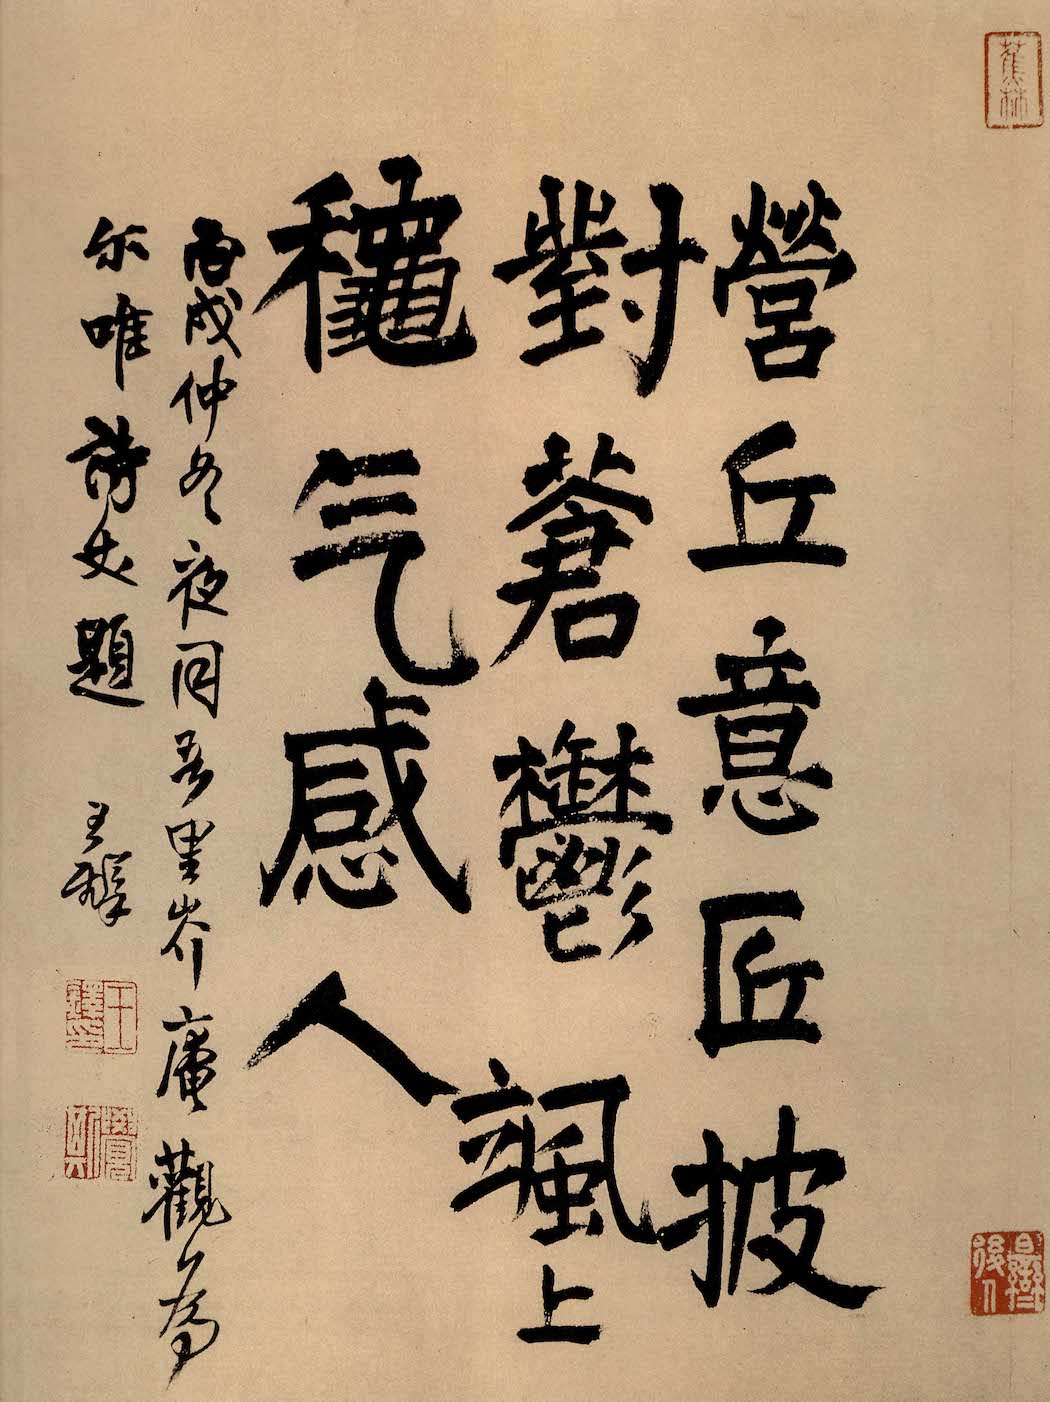 蕉林
營丘意匠披
對蒼鬱颯上
穐气感人
丙戌仲冬夜同吾里岕庵觀為
尔唯詩丈題 王鐸